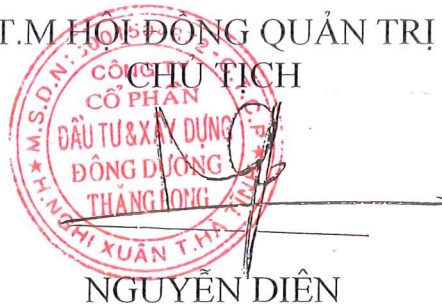 T.M HỘI ĐỒNG QUẢN TRỊ
CHỦ TỊCH
M.S.D.N:
C.T.C.P
CÔNG TY
CỔ PHẦN
ĐẦU TƯ & XÂY DỰNG
ĐÔNG DƯƠNG
THĂNG LONG
H. NGHI XUÂN T. HÀ TĨNH
NGUYỄN DIÊN